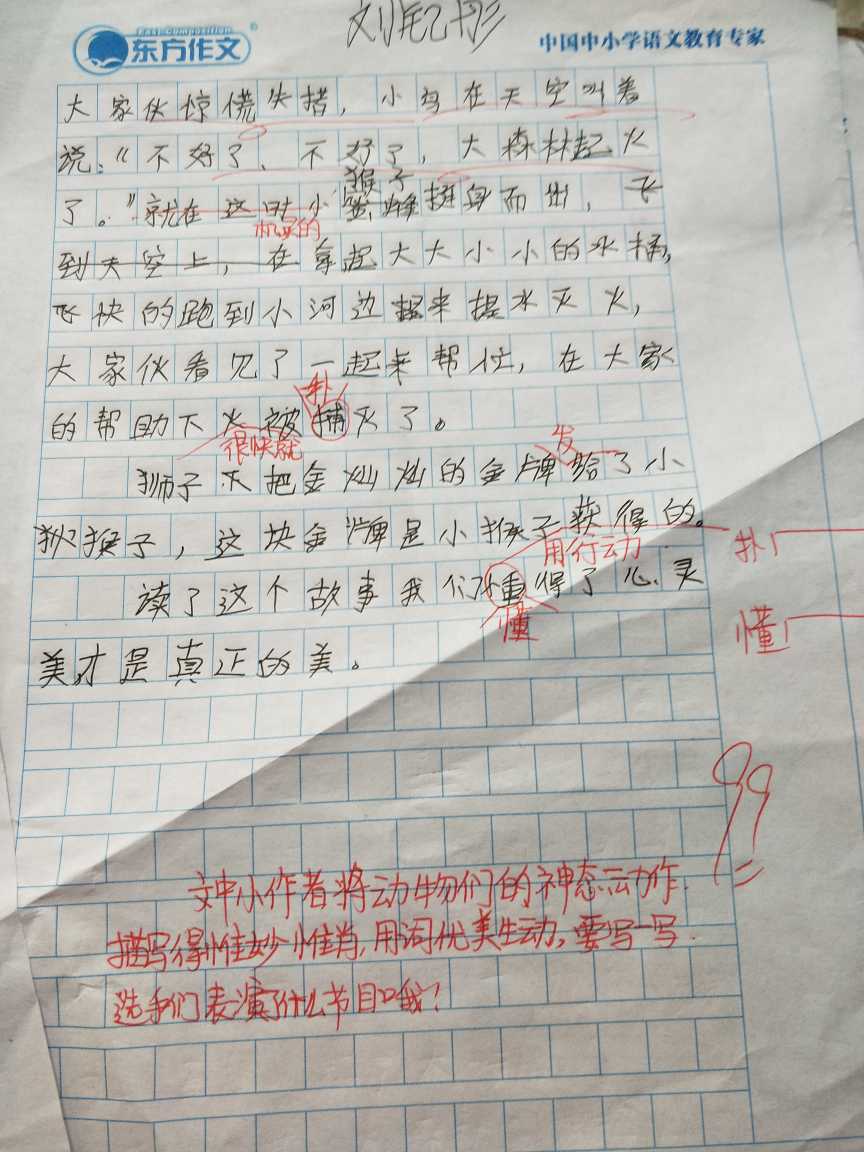 East Composition
东方作文
刘钇彤
中国中小学语文教育专家
大家伙惊慌失措，小鸟在天空叫着
说：“不好了、不好了，大森林起火
猴子
了。”就在这时小蜜蜂挺身而出，飞
机灵的
到天空上，在拿起大大小小的水桶，
飞快的跑到小河边提来提水灭火，
大家伙看见了一起来帮忙，在大家
扑
的帮助下火被捕灭了。
很快就
发
狮子王把金灿灿的金牌给了小
猴子，这块金牌是小猴子获得的。
用行动
扑
读了这个故事我们懂得了心灵
懂
懂
美才是真正的美。
99
文中小作者将动物们的神态动作
描写得惟妙惟肖，用词优美生动，要写一写
选手们表演了什么节目哦！